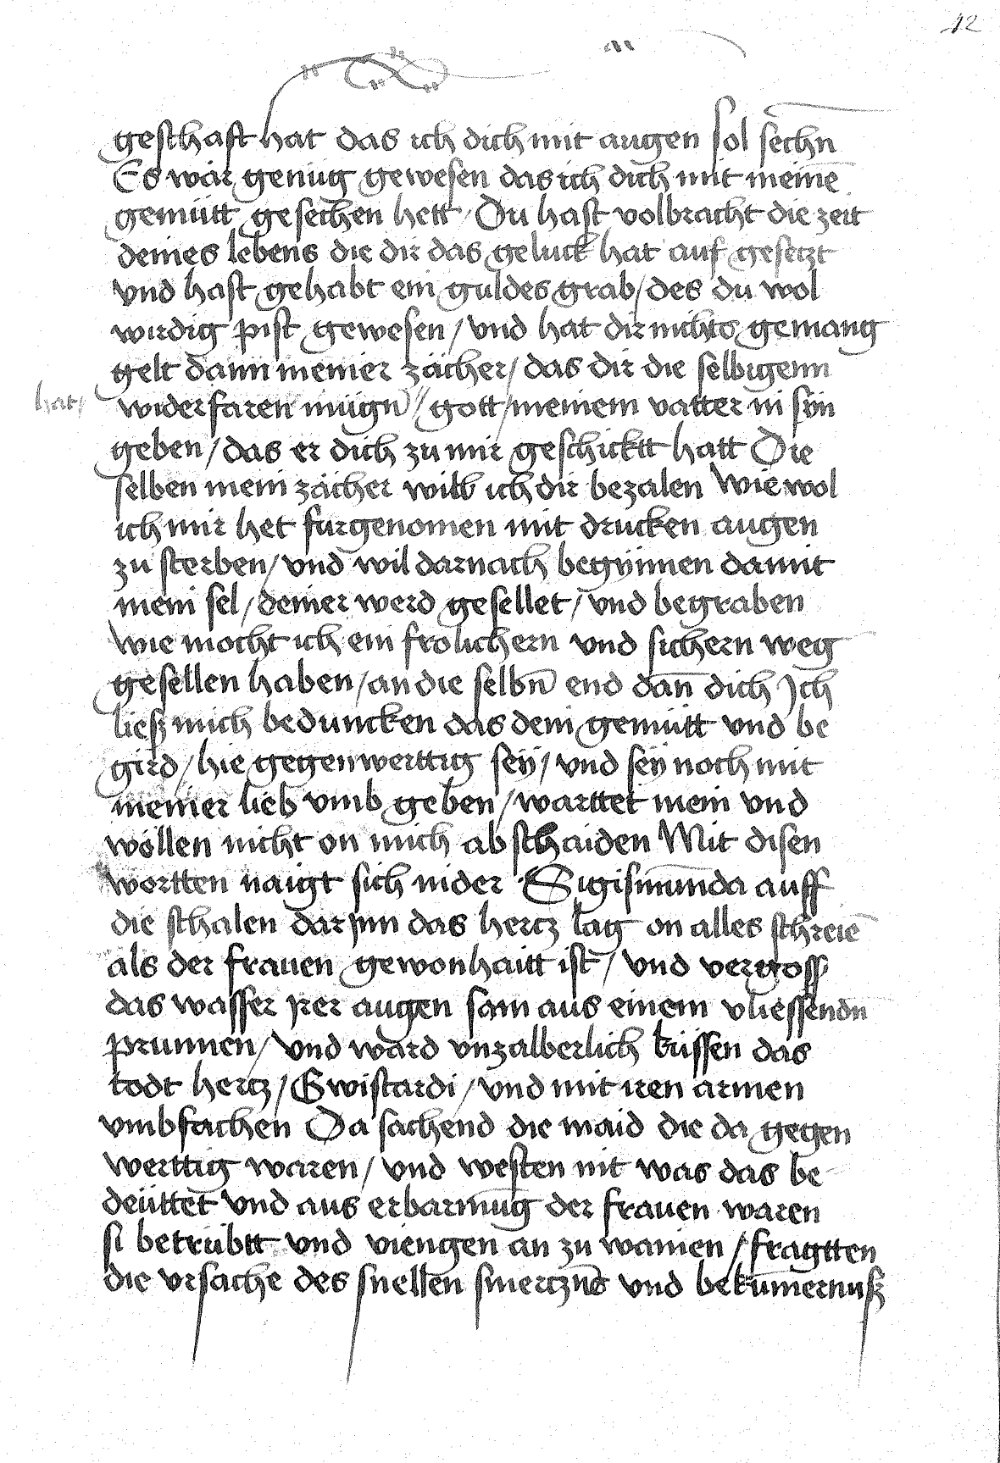 42
geschafft hat das ich dich mit augen sol sechn̄
Es wär genüg gewesen das ich dich mit meinē
gemütt gesechen hett / Du hast volbracht die zeit
deines lebens die dir das geluck hat auf gesetzt
vnd hast gehabt ein guldes grab / des du wol
wirdig pist gewesen / vnd hat dir nichts gemang
gelt dann meiner zächer / das dir die selbigenn
hat / widerfaren mügn̄ // gott / meinem vatter in syn
geben / das er dich zu mir geschicktt hatt Die
selben mein zächer will ich dir bezalen Wie wol
ich mir het furgenomen mit drucken augen
zu sterben / vnd wil darnach begÿnnen damit
mein sel / deiner werd gesellet / vnd begraben
Wie mocht ich ein frolichern vnd sichern weg
gesellen haben / an die selbn̄ end dan̄ dich Ich
ließ mich beduncken das dein gemütt vnd be
gird / hie gegenwerttig seÿ / vnd seÿ noch mit
meiner lieb vmb geben / warttet mein vnd
wöllen nicht on mich abschaiden Mit disen
wortten naigt sich nider Sigismūnda auff
die schalen darjnn das hertz lag on alles schreiē
als der frauen gewonhaitt ist / vnd vergoss
das wasser irer augen sam aus einem vliessendn̄
prunnen / vnd ward vnzalberlich küssen das
todt hertz / Gwistardi / vnd mit iren armen
vmbfachen Da sachend die maid die da gegen
werttig waren / vnd westen nit was das be
deüttet vnd aus erbarmūg der frauen waren
si betrübtt vnd viengen an zu wainen / fragtten
die vrsache des snellen smertznē vnd bekūmernuß